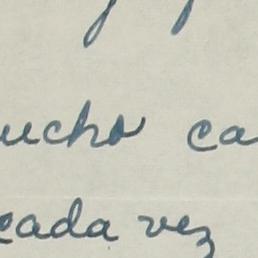 ucho ca
cada vez